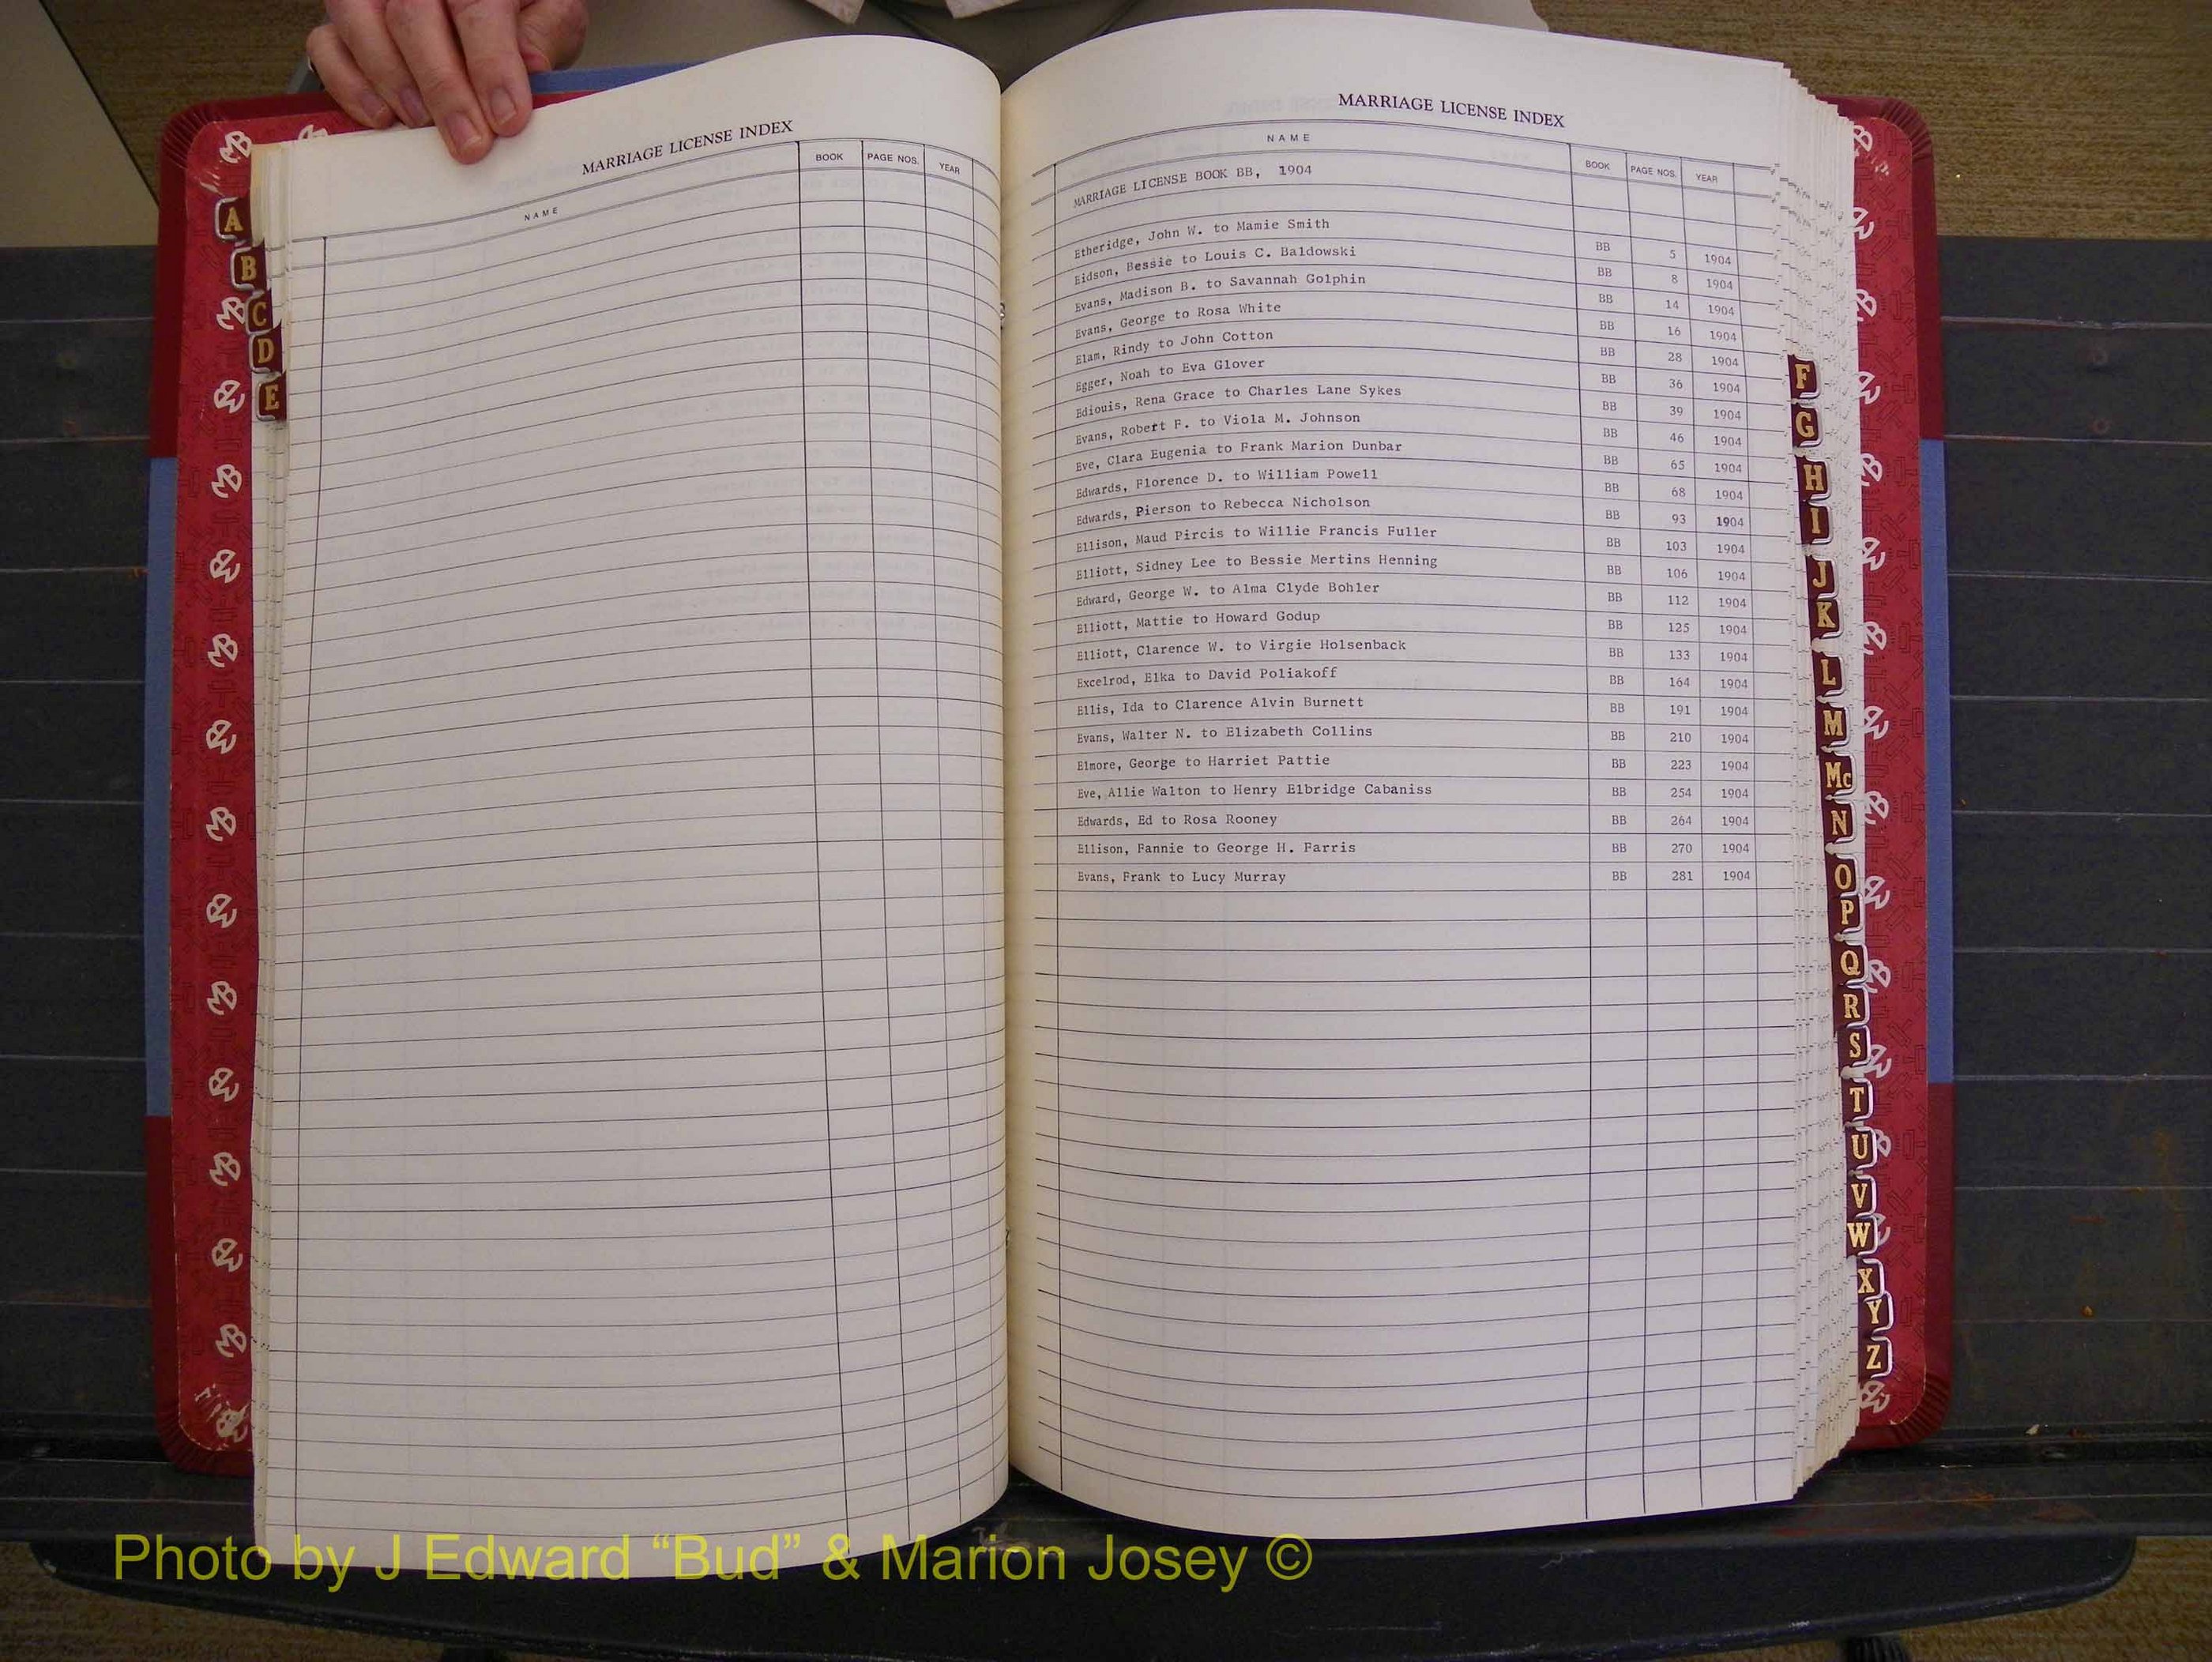 MARRIAGE LICENSE INDEX
NAME BOOK PAGE NOS. YEAR
A
B
C
D
E
MARRIAGE LICENSE INDEX
NAME BOOK PAGE NOS. YEAR
MARRIAGE LICENSE BOOK BB, 1904
Etheridge, John W. to Mamie Smith BB 5 1904
Eidson, Bessie to Louis C. Baldowski BB 8 1904
Evans, Madison B. to Savannah Golphin BB 14 1904
Evans, George to Rosa White BB 16 1904
Elam, Rindy to John Cotton BB 28 1904
Egger, Noah to Eva Glover BB 36 1904
Ediouis, Rena Grace to Charles Lane Sykes BB 39 1904
Evans, Robert F. to Viola M. Johnson BB 46 1904
Eve, Clara Eugenia to Frank Marion Dunbar BB 65 1904
Edwards, Florence D. to William Powell BB 68 1904
Edwards, Pierson to Rebecca Nicholson BB 93 1904
Ellison, Maud Pircis to Willie Francis Fuller BB 103 1904
Elliott, Sidney Lee to Bessie Mertins Henning BB 106 1904
Edward, George W. to Alma Clyde Bohler BB 112 1904
Elliott, Mattie to Howard Godup BB 125 1904
Elliott, Clarence W. to Virgie Holsenback BB 133 1904
Excelrod, Elka to David Poliakoff BB 164 1904
Ellis, Ida to Clarence Alvin Burnett BB 191 1904
Evans, Walter N. to Elizabeth Collins BB 210 1904
Elmore, George to Harriet Pattie BB 223 1904
Eve, Allie Walton to Henry Elbridge Cabaniss BB 254 1904
Edwards, Ed to Rosa Rooney BB 264 1904
Ellison, Fannie to George H. Farris BB 270 1904
Evans, Frank to Lucy Murray BB 281 1904
F
G
H
I
J
K
L
M
Mc
N
O
P
Q
R
S
T
U
V
W
X
Y
Z
Photo by J Edward “Bud” & Marion Josey ©